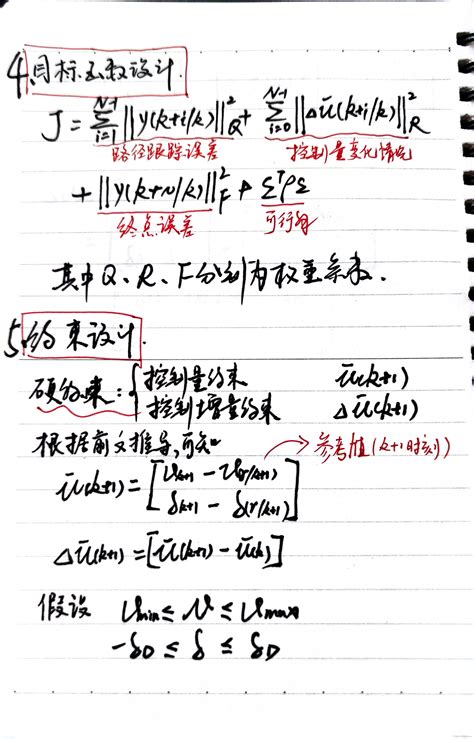 4.目标函数设计.
J = \sum_{i=1}^{N-1} ||y(k+i/k)||^2_Q + \sum_{i=0}^{N-1} ||Δũ(k+i/k)||^2_R
路径跟踪误差 控制量变化情况
+ ||y(k+N/k)||^2_F + ε^Tρε
终点误差 可行解
其中Q、R、F分别为权重系数.
5.约束设计.
硬约束: { 控制量约束 ũ(k+1)
控制增量约束 Δũ(k+1)
根据前文推导,可知 → 参考值(k+1时刻)
ũ(k+1) = [ v_{k+1} - v_{(r/k+1)}
δ_{k+1} - δ_{(r/k+1)} ]
Δũ(k+1) = [ũ(k+1) - ũ(k)]
假设 v_{min} ≤ v ≤ v_{max}
-δ_D ≤ δ ≤ δ_D